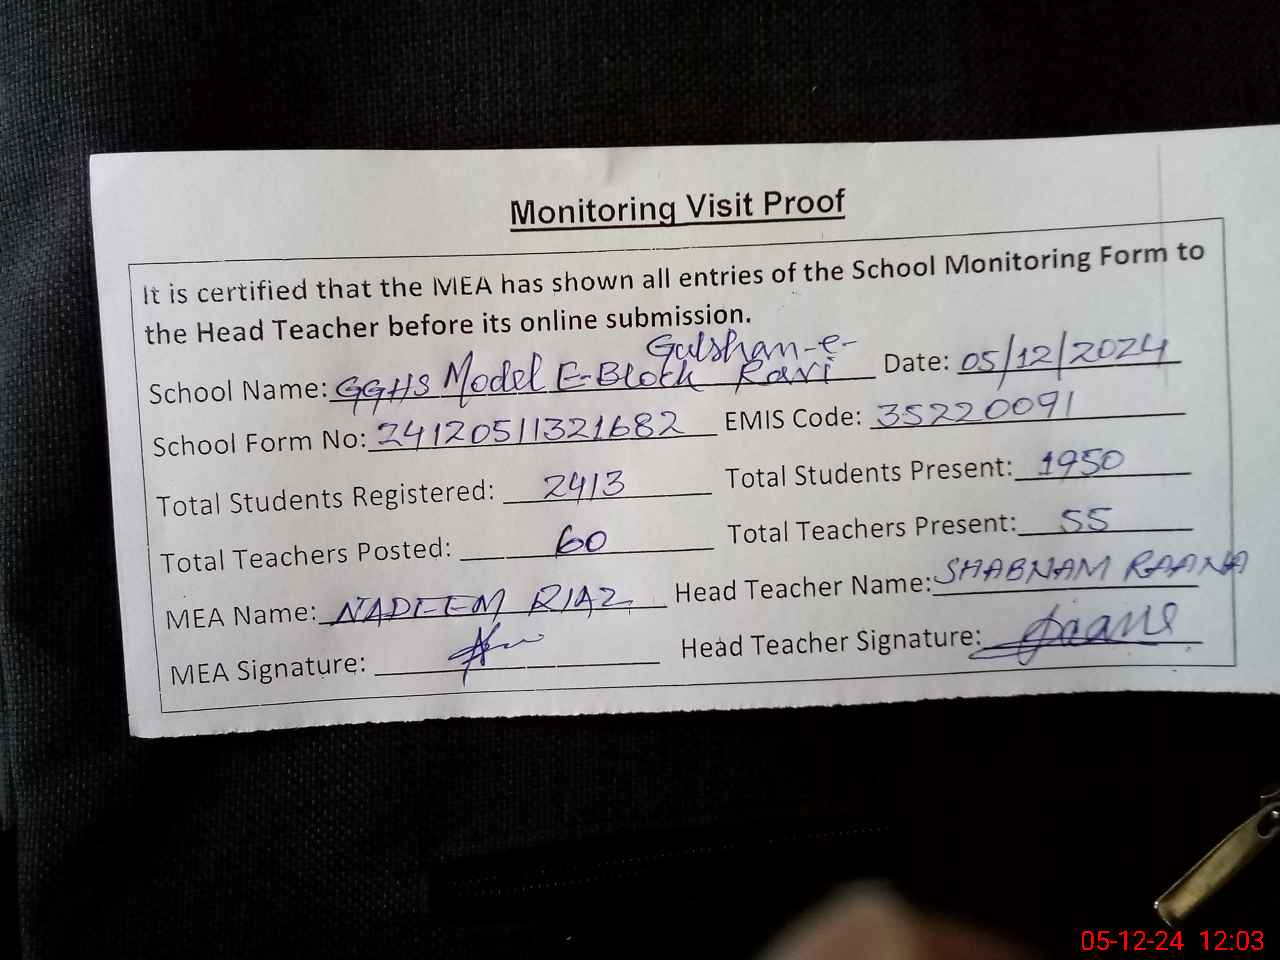 Monitoring Visit Proof
It is certified that the MEA has shown all entries of the School Monitoring Form to
the Head Teacher before its online submission.
School Name: GGHS Model E-Block Gulshan-e-Ravi Date: 05/12/2024
School Form No: 24120511321682 EMIS Code: 35220091
Total Students Registered: 2413 Total Students Present: 1950
Total Teachers Posted: 60 Total Teachers Present: 55
MEA Name: NADEEM RIAZ Head Teacher Name: SHABNAM RAANA
MEA Signature: Head Teacher Signature:
05-12-24 12:03